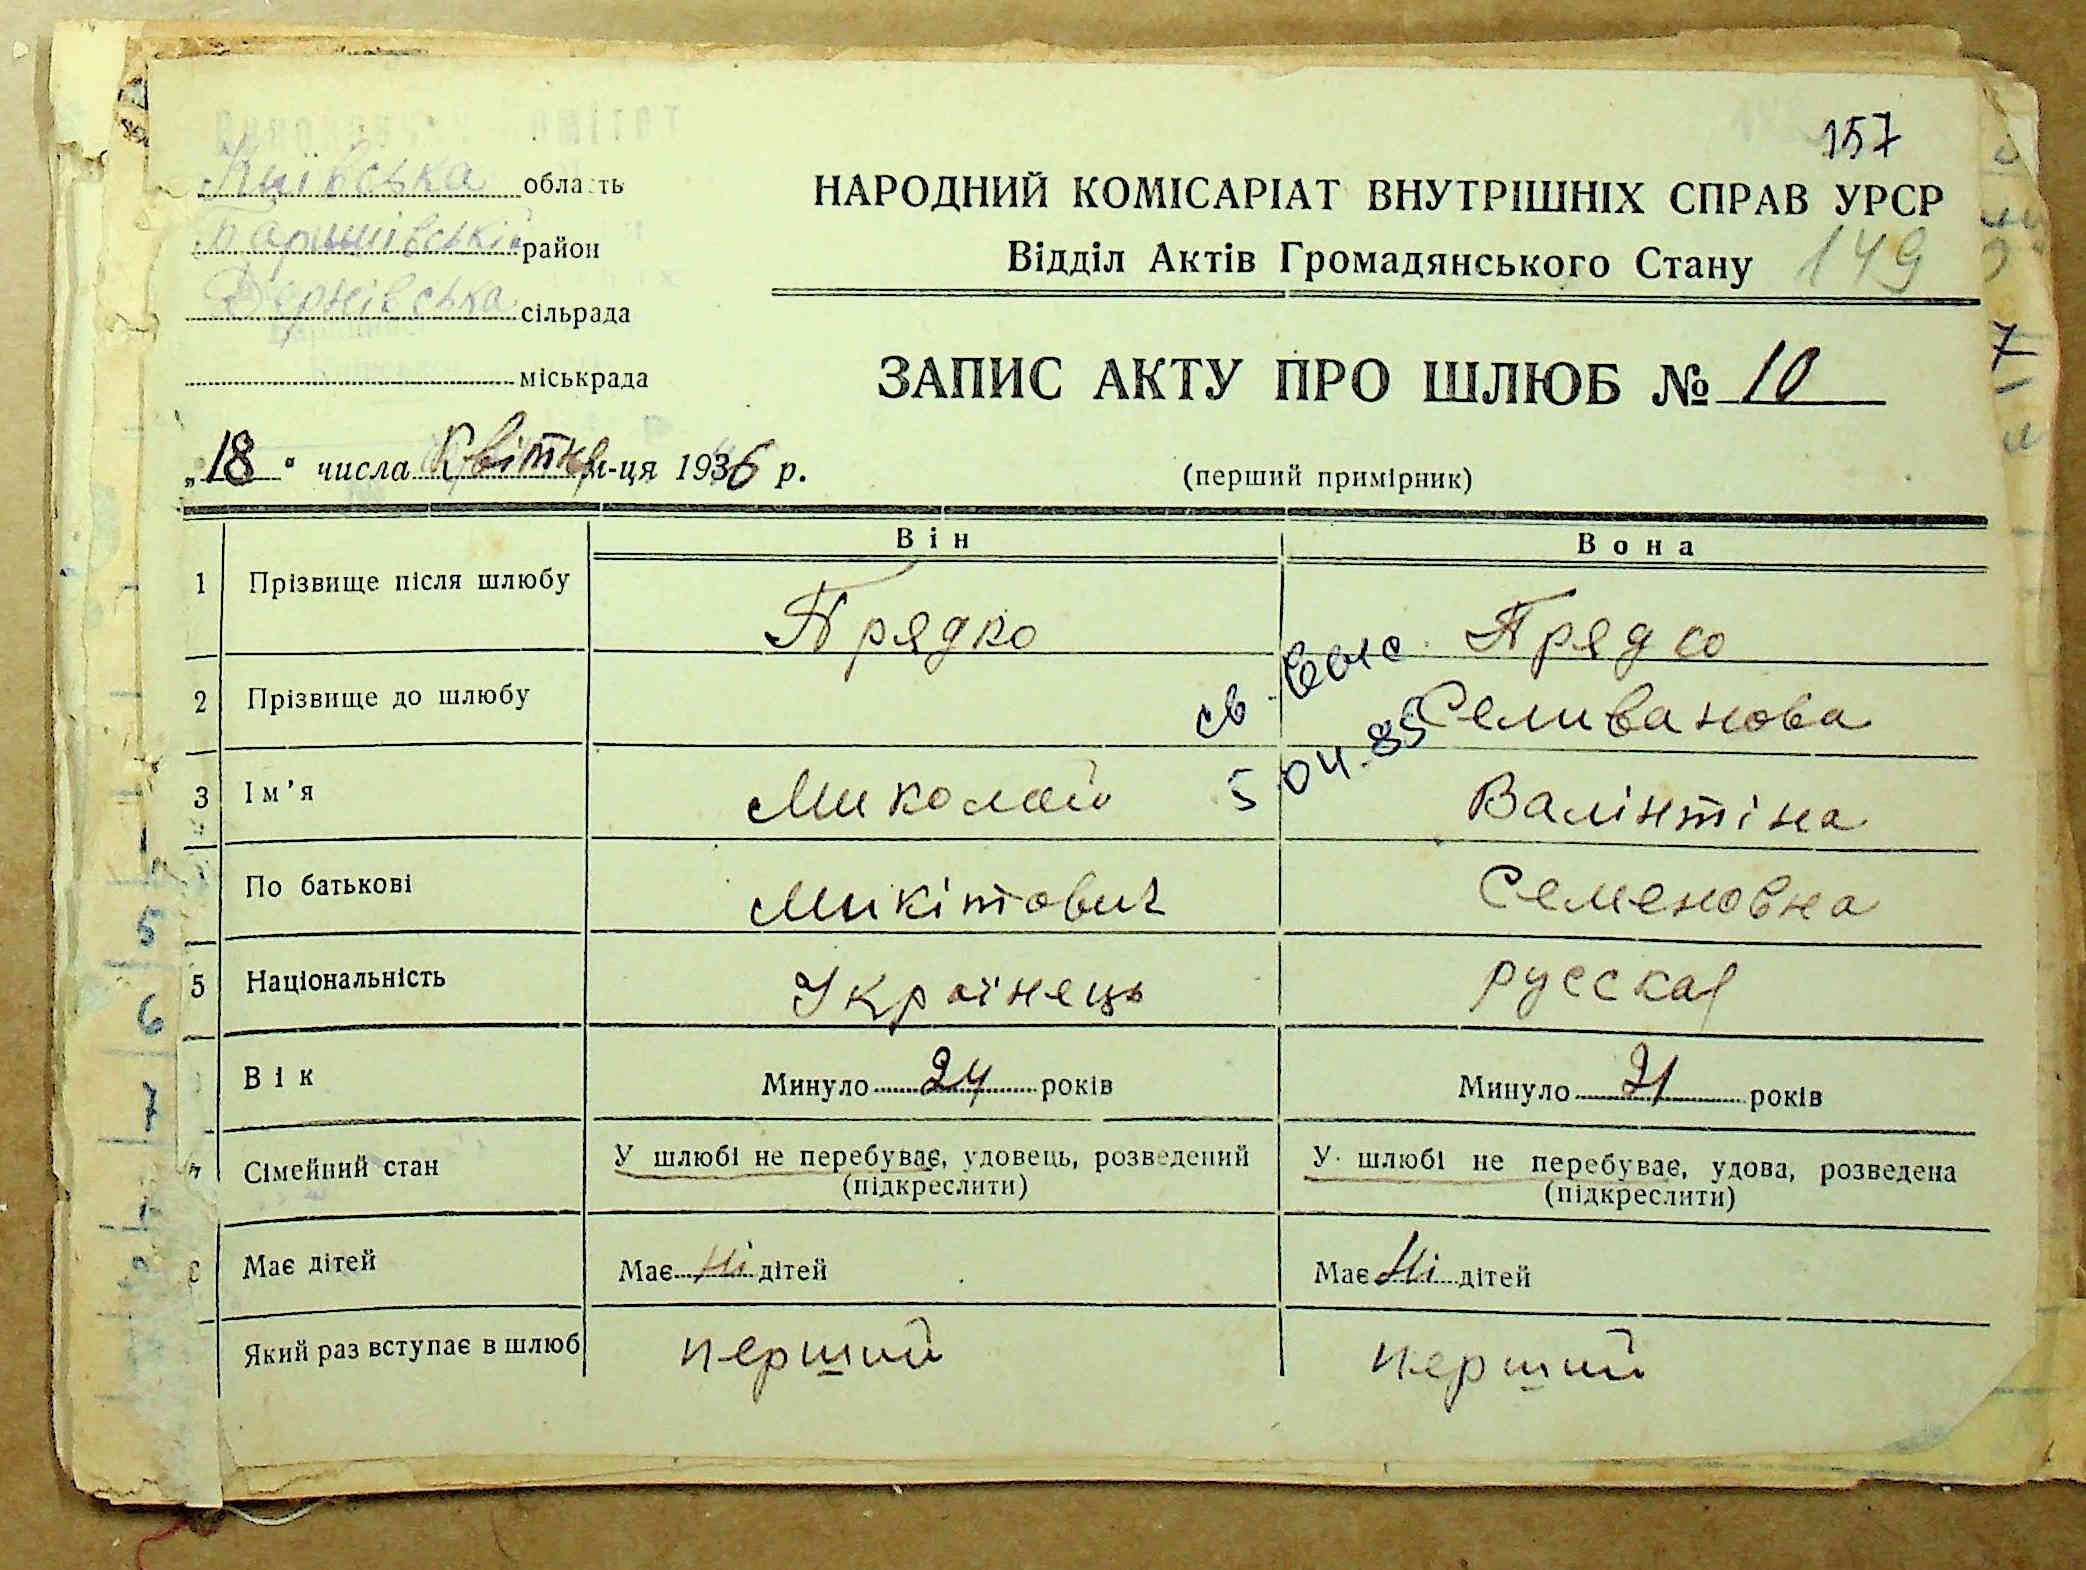 157
Київська область
Баришівський район
Дернівська сільрада
міськрада
НАРОДНИЙ КОМІСАРІАТ ВНУТРІШНІХ СПРАВ УРСР
Відділ Актів Громадянського Стану 149
ЗАПИС АКТУ ПРО ШЛЮБ № 10
„18“ числа Квітня м-ця 1936 р.
(перший примірник)
Він Вона
1 Прізвище після шлюбу Прядко Прядко
св. выс
2 Прізвище до шлюбу Селиванова
5.04.85
3 Ім'я Миколай Валінтіна
По батькові Микітович Семеновна
5 Національність Українець русская
Вік Минуло 24 років Минуло 21 років
Сімейний стан У шлюбі не перебуває, удовець, розведений У шлюбі не перебуває, удова, розведена
(підкреслити) (підкреслити)
Має дітей Має Ні дітей Має Ні дітей
Який раз вступає в шлюб перший перший